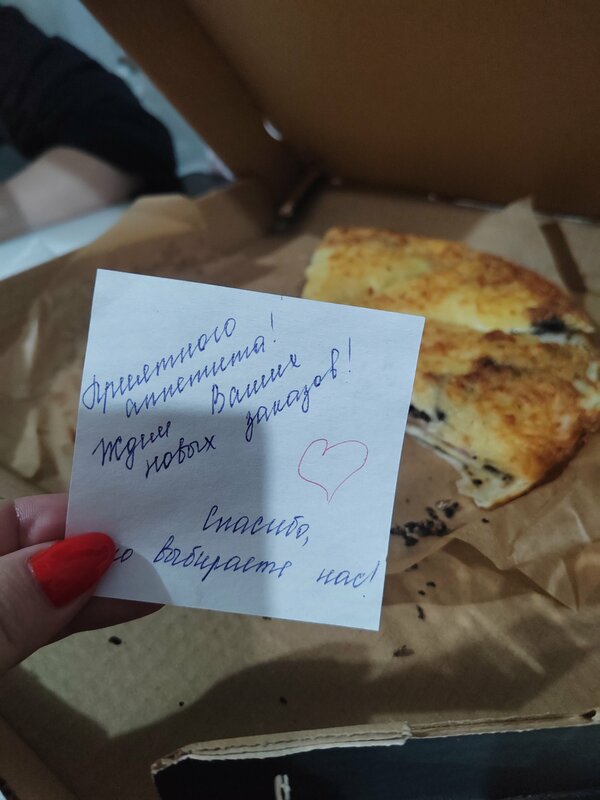 Приятного
аппетита!
Ждем Ваших
новых заказов!
Спасибо,
выбираете нас!